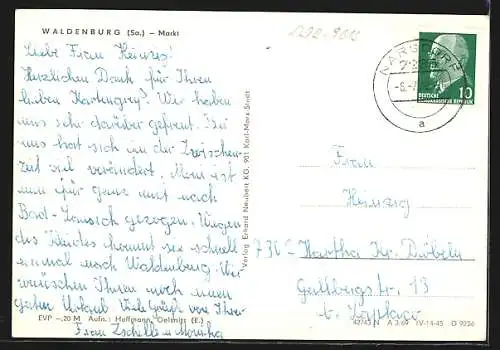 WALDENBURG (Sa.) — Markt
Liebe Frau Heinzig!
Herzlichen Dank für Ihren
lieben Kartengruß! Wir haben
uns sehr darüber gefreut. Bei
uns hat sich in der Zwischen-
zeit viel verändert. Mona ist
nun für ganz mit nach
Bad-Lausick gezogen. Wegen
des Kleides kommt sie schnell
einmal nach Waldenburg. Wir
wünschen Ihnen noch einen
guten Urlaub Viele Grüße von Ihrer
Frau Zschille u. Monika
EVP –,20 M Aufn.: Hoffmann, Oelsnitz (E.)
Verlag Erhard Neubert KG, 901 Karl-Marx-Stadt
NARSDORF
a
10
DEUTSCHE
DEMOKRATISCHE REPUBLIK
Frau
Heinzig
Hartha Kr. Döbeln
13
b.
A 3/69 IV-14-45 D 9236